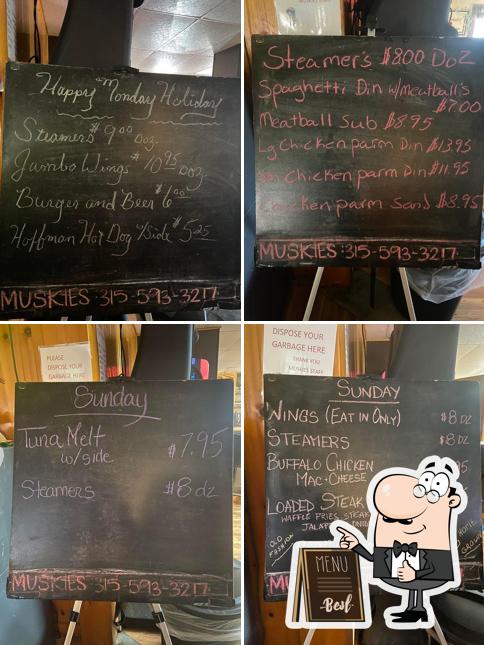 Happy Monday Holiday
Steamers $9.00 Doz.
Jumbo Wings $10.95 Doz
Burger and Beer $6.00
Hoffman Hot Dog w/Side $5.25
MUSKIES 315-593-3217
Steamer's $8.00 Doz
Spaghetti Din w/meatball's
$7.00
Meatball Sub $8.95
Lg Chicken parm Din $13.95
Sm Chicken parm Din $11.95
Chicken parm Sand $8.95
MUSKIES 315-593-3217
PLEASE
DISPOSE YOUR
GARBAGE HERE
Sunday
Tuna Melt
w/side
$7.95
Steamers $8 dz
MUSKIES 315-593-3217
DISPOSE YOUR
GARBAGE HERE
THANK YOU
MUSKIES STAFF
SUNDAY
WINGS (EAT IN ONLY) $8 DZ
STEAMERS $8 DZ
BUFFALO CHICKEN
MAC + CHEESE
LOADED STEAK
WAFFLE FRIES, STEAK
OLD
FASHION
HOME
MENU
Best